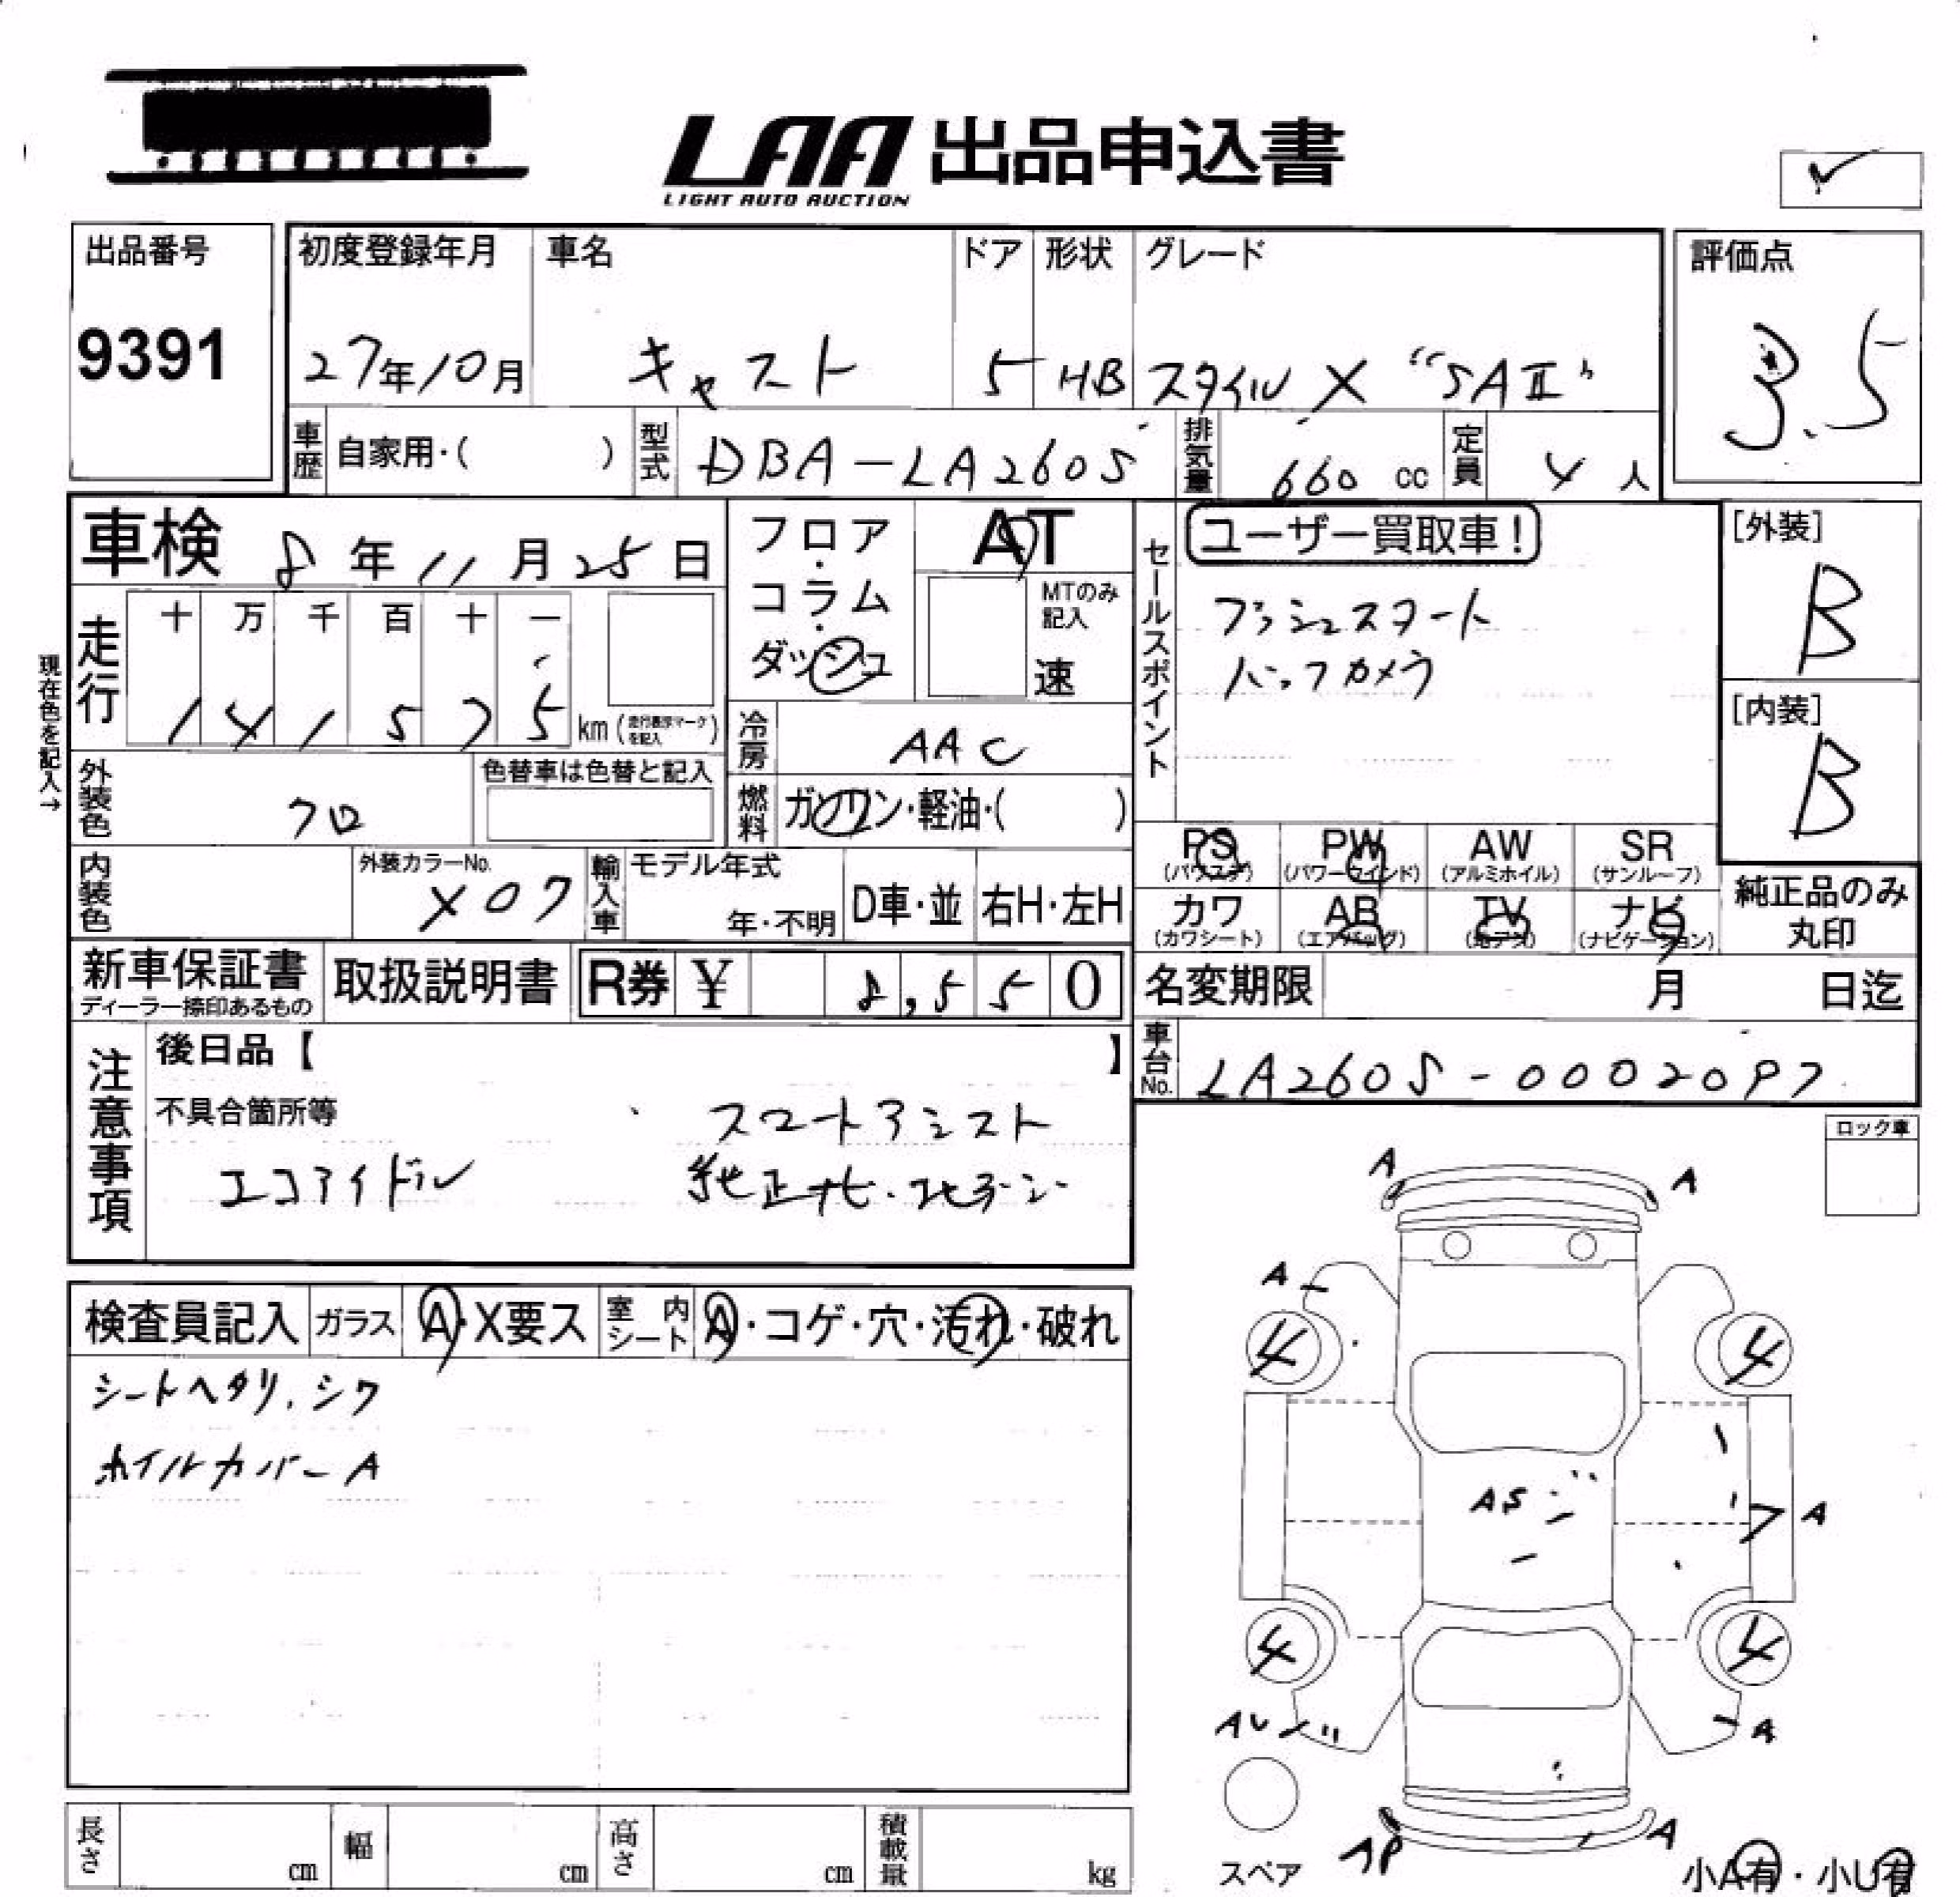 LAA 出品申込書
LIGHT AUTO AUCTION
✓
出品番号
9391
初度登録年月
27年10月
車名
キャスト
ドア
5
形状
HB
グレード
スタイル X "SAⅡ"
評価点
3.5
車歴
自家用・( )
型式
DBA-LA260S
排気量
660 cc
定員
4 人
車検 8年11月25日
現在色を記入→
走行
十 万 千 百 十 一
1 4 1 5 7 5 km (走行表示マークを記入)
フロア・コラム・ダッシュ
AT
MTのみ記入
速
冷房
AAC
燃料
ガソリン・軽油・( )
外装色
クロ
色替車は色替と記入
内装色
外装カラーNo.
X07
輸入車
モデル年式
年・不明
D車・並
右H・左H
新車保証書
ディーラー捺印あるもの
取扱説明書
R券 ¥ 8,550
セールスポイント
ユーザー買取車!
プッシュスタート
バックカメラ
[外装]
B
[内装]
B
PS
(パワステ)
PW
(パワーウインド)
AW
(アルミホイル)
SR
(サンルーフ)
カワ
(カワシート)
AB
(エアバッグ)
TV
(地デジ)
ナビ
(ナビゲーション)
純正品のみ
丸印
名変期限 月 日迄
車台No.
LA260S-0002097
注意事項
後日品【 】
不具合箇所等
スマートアシスト
エコアイドル
純正ナビ・地デジ
ロック車
検査員記入
ガラス
A・X要ス
室内シート
A・コゲ・穴・汚れ・破れ
シートヘタリ、シワ
ホイルカバーA
A
A
A
4
4
AS
A
4
4
AU
A
A
スペア
小A有・小U有
長さ cm
幅 cm
高さ cm
積載量 kg